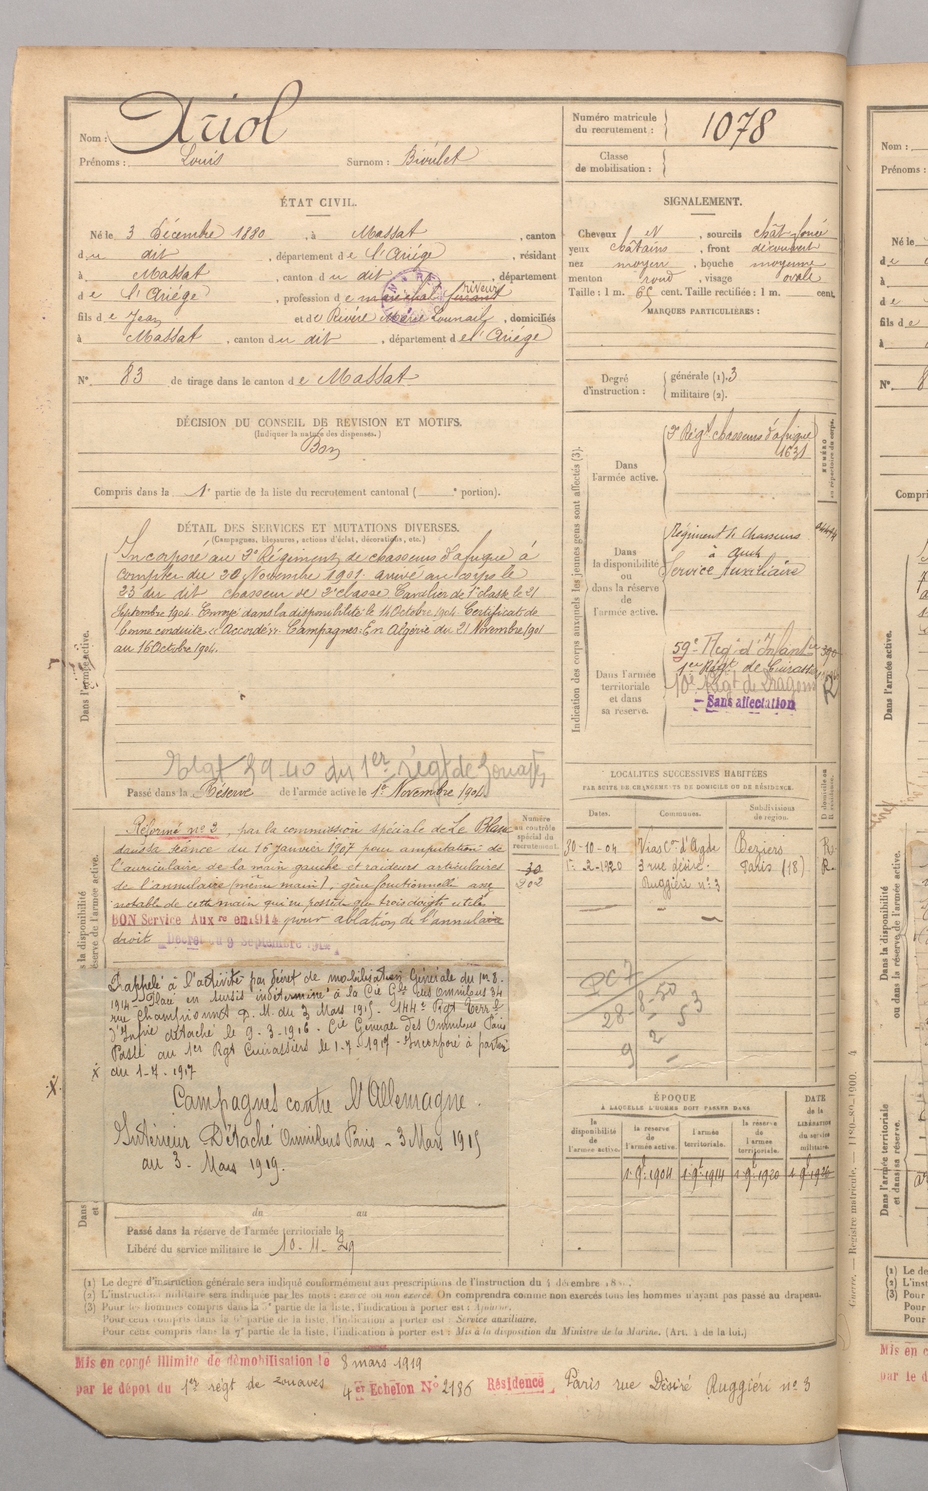 Nom : Ariol
Prénoms : Louis Surnom : Bioulet
Numéro matricule du recrutement : 1078
Classe de mobilisation :
ÉTAT CIVIL.
Né le 3 Décembre 1880, à Massat, canton
du dit, département de l'Ariége, résidant
à Massat, canton du dit, département
de l'Ariége, profession de maréchal ferrant riveur
fils de Jean et de Rivére Marie, domiciliés
à Massat, canton du dit, département de l'Ariége
N° 83 de tirage dans le canton de Massat
SIGNALEMENT.
Cheveux N, sourcils chât foncé
yeux châtains, front découvert
nez moyen, bouche moyenne
menton rond, visage ovale
Taille : 1 m. 65 cent. Taille rectifiée : 1 m. cent.
MARQUES PARTICULIÈRES :
Degré d'instruction : générale (1). 3
militaire (2).
DÉCISION DU CONSEIL DE RÉVISION ET MOTIFS.
(Indiquer la nature des dispenses.)
Bon
Compris dans la 1e partie de la liste du recrutement cantonal ( e portion).
DÉTAIL DES SERVICES ET MUTATIONS DIVERSES.
(Campagnes, blessures, actions d'éclat, décorations, etc.)
Dans l'armée active.
Incorporé au 2e Régiment de chasseurs d'afrique à
compter du 20 Novembre 1901 arrivé au corps le
23 du dit chasseur de 2e classe Cavalier de 1e classe le 21
Septembre 1904. Envoyé dans la disponibilité le 16 Octobre 1904. Certificat de
bonne conduite "Accordé". Campagnes: En Algérie du 21 Novembre 1901
au 16 Octobre 1904.
Regt 39-40 du 1er régt de Zouaves
Passé dans la Réserve de l'armée active le 1er Novembre 1904.
Indication des corps auxquels les jeunes gens sont affectés (3).
NUMÉRO au répertoire du corps.
Dans l'armée active.
2e Régt chasseurs d'afrique
1631
Dans la disponibilité ou dans la réserve de l'armée active.
Régiment de Chasseurs
à Auch
Service Auxiliaire
Dans l'armée territoriale et dans sa réserve.
59e Regt d'Infant
1er Régt de Cuirass
10e Régt de Dragons
Sans affectation
R
Numéro au contrôle spécial du recrutement.
30
202
Réformé n° 2, par la commission spéciale de Le Blanc
dans sa séance du 16 janvier 1907 pour amputation de
l'auriculaire de la main gauche et raideurs articulaires
de l'annulaire (même main), gêne fonctionnelle assez
notable de cette main qui ne possède que trois doigts utiles
BON Service Auxre en 1914 pour ablation de l'annulaire
droit Décret du 9 Septembre 1914
Rappelé à l'activité par décret de mobilisation Générale du 1er 8.
1914 - Placé en sursis indéterminé à la Cie Gle des Omnibus 34
rue Championnet D. M. du 3 Mars 1915 - 144e Régt Terral
d'Infie détaché le 9-3-1916 - Cie Générale des Omnibus Paris
Passé au 1er Rgt Cuirassiers le 1-7-1917 - Incorporé à partir
du 1-7-1917
Campagnes contre l'Allemagne.
Intérieur Détaché Omnibus Paris - 3 Mars 1915
au 3 - Mars 1919.
du au
Passé dans la réserve de l'armée territoriale le
Libéré du service militaire le 10-11-29
LOCALITÉS SUCCESSIVES HABITÉES
PAR SUITE DE CHANGEMENTS DE DOMICILE OU DE RÉSIDENCE.
Dates. Communes. Subdivisions de région. D domicile ou R résidence.
30-10-04 Vias Con d'Agde Béziers R.
1er-2-1920 3 rue désiré Paris (18) R
Ruggieri n° 3
28-8-50
ÉPOQUE
À LAQUELLE L'HOMME DOIT PASSER DANS
la disponibilité de l'armée active.
la réserve de l'armée active.
l'armée territoriale.
la réserve de l'armée territoriale.
DATE de la LIBÉRATION du service militaire.
1 9b 1904 1 9b 1914 1 9b 1920 1 9b 1926
(1) Le degré d'instruction générale sera indiqué conformément aux prescriptions de l'instruction du 4 décembre 18
(2) L'instruction militaire sera indiquée par les mots : exercé ou non exercé. On comprendra comme non exercés tous les hommes n'ayant pas passé au drapeau.
(3) Pour les hommes compris dans la partie de la liste, l'indication à porter est : Ajourné.
Pour ceux compris dans la 6e partie de la liste, l'indication à porter est : Service auxiliaire.
Pour ceux compris dans la 7e partie de la liste, l'indication à porter est : Mis à la disposition du Ministre de la Marine. (Art. 4 de la loi.)
Mis en congé illimité de démobilisation le 8 mars 1919
par le dépôt du 1er régt de zouaves 4er Echelon N° 2186 Résidence Paris rue Désiré Ruggiéri n° 3
Guerre. — Registre matricule. — 1180-80-1900. 4